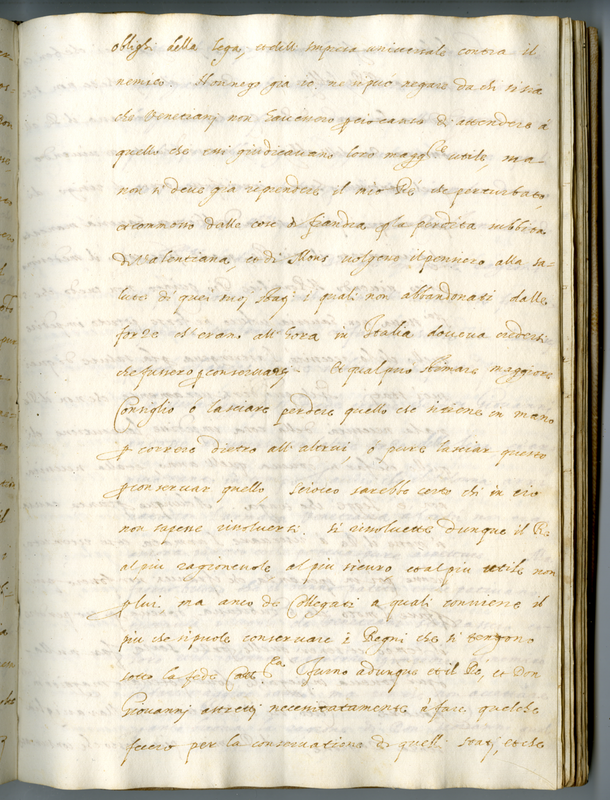 oblighi della lega, et dell impresa universale contra il
nemico. Non nego già io, ne si puo negare da chi si sia
che Venetianj non havessero causa d attendere à
quello che essi giudicavano loro magg.re utile, ma
non si deve già riprendere il mio Rè che perturbato
et commosso dalle cose di fiandra p la perdita subbita
di Valentiana, et di Mons volgesse il pensiero alla sa-
lute di quei suoj stati i quali non abbandonati dalle
forze ch erano all hora in Italia doveva credersi
che fussero p conservarsj. Et qual puo stimarsi maggiore
Consiglio ò lasciare perdere quello che si tiene in mano
p correre dietro all altrui, ò pure lasciar questo
p conservar quello, sciocco sarebbe certo chi in ciò
non sapesse risolversi. si risolvette dunque il Rè
al più ragionevole al più sicuro et al più utile non
p lui, ma anco de Collegati a quali conviene il
più che si puole conservare i Regni che si tengono
sotto la fede Catt.ca Furno adunque et il Rè, et Don
Giovannj astrettj necessitatamente à fare quelche
fecero per la conservatione di quelli statj, et che